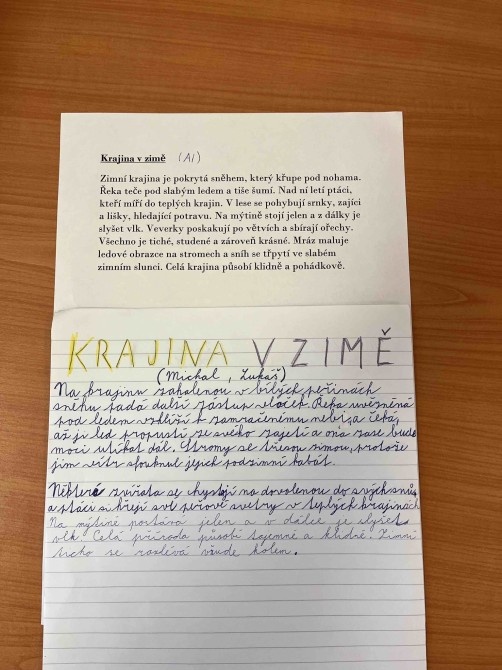 Krajina v zimě (AI)
Zimní krajina je pokrytá sněhem, který křupe pod nohama.
Řeka teče pod slabým ledem a tiše šumí. Nad ní letí ptáci,
kteří míří do teplých krajin. V lese se pohybují srnky, zajíci
a lišky, hledající potravu. Na mýtině stojí jelen a z dálky je
slyšet vlk. Veverky poskakují po větvích a sbírají ořechy.
Všechno je tiché, studené a zároveň krásné. Mráz maluje
ledové obrazce na stromech a sníh se třpytí ve slabém
zimním slunci. Celá krajina působí klidně a pohádkově.
KRAJINA V ZIMĚ
(Michal, Lukáš)
Na krajinu zahalenou v bílých peřinách
sněhu padá další zástup vloček. Řeka uvězněná
pod ledem vzhlíží k zamračenému nebi a čeká,
až ji led propustí ze svého zajetí a ona zase bude
moci utíkat dál. Stromy se třesou zimou, protože
jim vítr sfouknul jejich podzimní kabát.
Některá zvířata se chystají na dovolenou do svých snů
a ptáci si hřejí své peřové svetry v teplých krajinách.
Na mýtině postává jelen a v dálce je slyšet
vlk. Celá příroda působí tajemně a klidně. Zimní
ticho se rozlévá všude kolem.